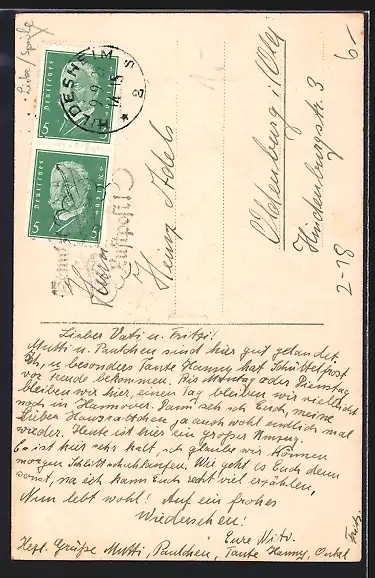 Liebe/
6-
HILDESHEIM
9.9.
14-15
S 2
Deutsches Reich
5 5
Deutsches Reich
5 5
Luftpost
Heinz
Oldenburg i/Old.
Hindenburgstr. 3
2-18
Lieber Vati u. Fritzi!
Mutti u. Paulchen sind hier gut gelandet.
Ich u. besonders Tante Hanny hat
vor Freude bekommen. Bis Montag oder Dienstag
bleiben wir hier, einen Tag bleiben wir vielleicht
noch in Hannover. Dann seh ich Euch, meine
lieben ja auch wohl endlich mal
wieder. Heute ist hier ein großer Umzug.
Es ist hier sehr kalt, ich glaube wir können
morgen Schlittschuhlaufen. Wie geht es Euch denn
sonst, na ich kann Euch recht viel erzählen,
Nun lebt wohl! Auf ein frohes
Wiedersehen!
Eure
Herzl. Grüße Mutti, Paulchen, Tante Hanny, Onkel
Fritz